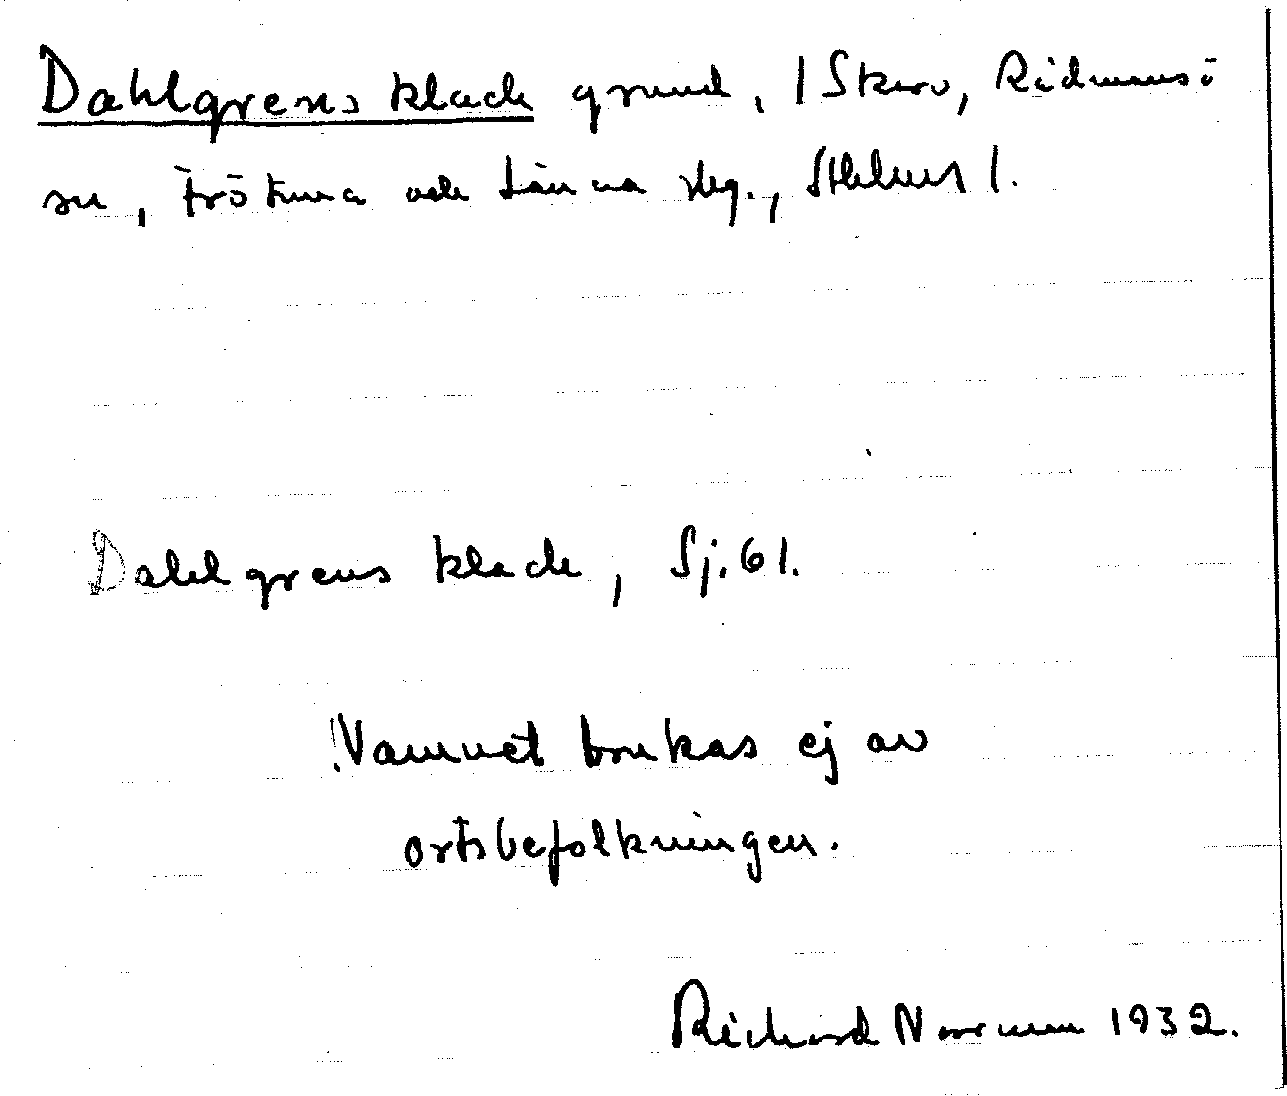 Dahlgrens klack grund, I Skarv, Rådmansö
sn, Frötuna och Länna skg., Sthlms l.
Dahlgrens klack, Sj. 61.
Namnet brukas ej av
ortsbefolkningen.
Richard Norrman 1932.